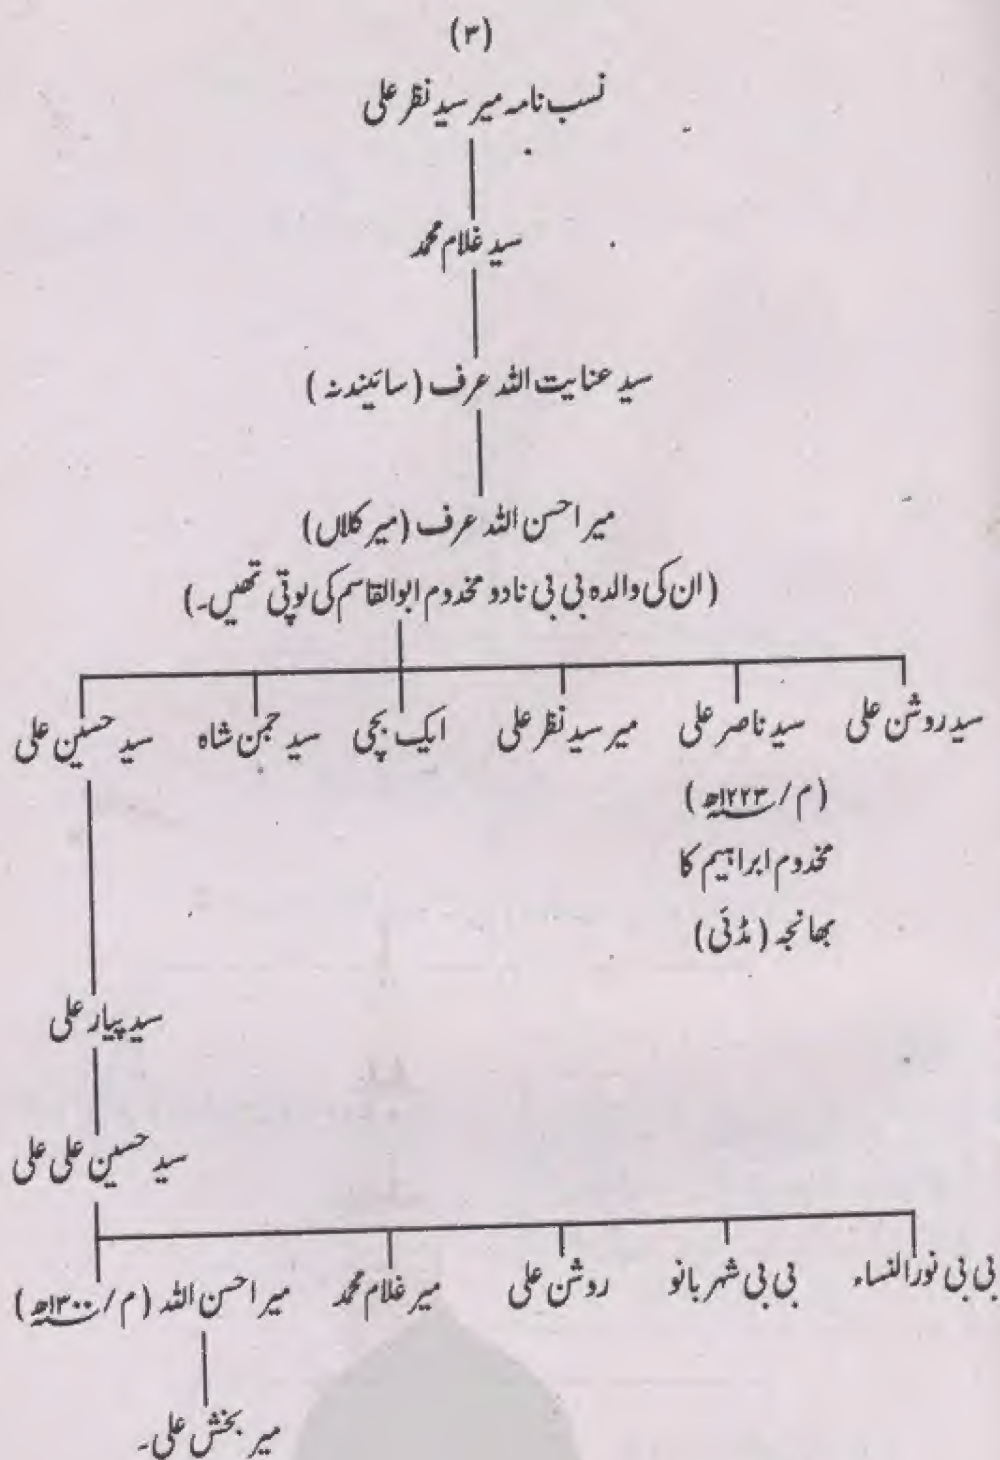 (۳)
نسب نامہ میر سید نظر علی
سید غلام محمد
سید عنایت اللہ عرف (سائیندنہ)
میر احسن اللہ عرف (میر کلاں)
(ان کی والدہ بی بی نادو مخدوم ابوالقاسم کی پوتی تھیں۔)
سید روشن علی سید ناصر علی میر سید نظر علی ایک بچی سید جمن شاہ سید حسنین علی
(م/۱۲۲۳ھ)
مخدوم ابراہیم کا
بھانجہ (مڈئی)
سید پیار علی
سید حسین علی علی
بی بی نورالنساء بی بی شہر بانو روشن علی میر غلام محمد میر احسن اللہ (م/۱۳۰۰ھ)
میر بخش علی۔